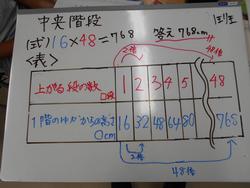 中央階段
(式) 16×48=768 答え 768cm
<表>
2倍 48倍
上がる段の数 □段 1 2 3 4 5 48
1階のゆかからの高さ ○cm 16 32 48 64 80 768
2倍
48倍